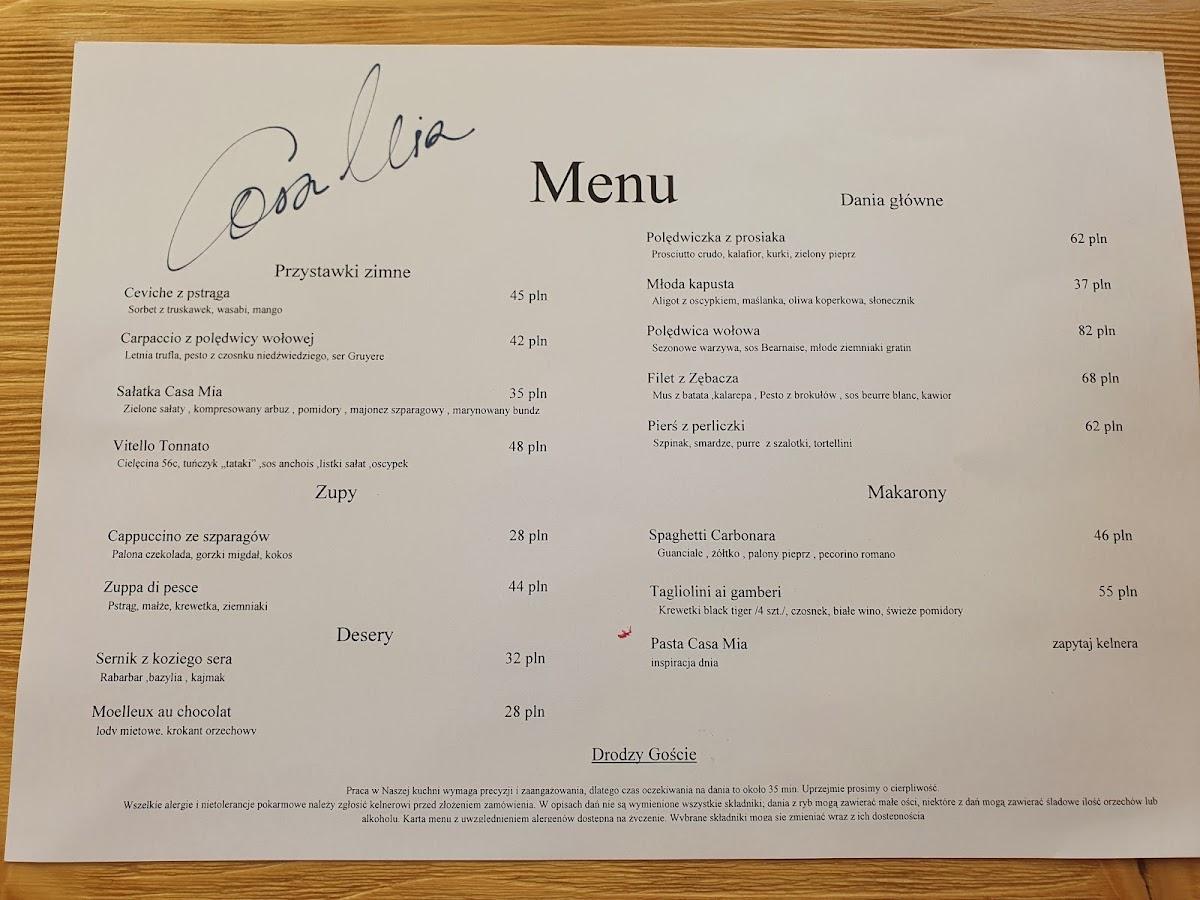 Casa Mia
Menu
Przystawki zimne
Ceviche z pstrąga 45 pln
Sorbet z truskawek, wasabi, mango
Carpaccio z polędwicy wołowej 42 pln
Letnia trufla, pesto z czosnku niedźwiedziego, ser Gruyere
Sałatka Casa Mia 35 pln
Zielone sałaty , kompresowany arbuz , pomidory , majonez szparagowy , marynowany bundz
Vitello Tonnato 48 pln
Cielęcina 56c, tuńczyk „tataki” ,sos anchois ,listki sałat ,oscypek
Zupy
Cappuccino ze szparagów 28 pln
Palona czekolada, gorzki migdał, kokos
Zuppa di pesce 44 pln
Pstrąg, małże, krewetka, ziemniaki
Desery
Sernik z koziego sera 32 pln
Rabarbar ,bazylia , kajmak
Moelleux au chocolat 28 pln
lody miętowe, krokant orzechowy
Dania główne
Polędwiczka z prosiaka 62 pln
Prosciutto crudo, kalafior, kurki, zielony pieprz
Młoda kapusta 37 pln
Aligot z oscypkiem, maślanka, oliwa koperkowa, słonecznik
Polędwica wołowa 82 pln
Sezonowe warzywa, sos Bearnaise, młode ziemniaki gratin
Filet z Zębacza 68 pln
Mus z batata ,kalarepa , Pesto z brokułów , sos beurre blanc, kawior
Pierś z perliczki 62 pln
Szpinak, smardze, purre z szalotki, tortellini
Makarony
Spaghetti Carbonara 46 pln
Guanciale , żółtko , palony pieprz , pecorino romano
Tagliolini ai gamberi 55 pln
Krewetki black tiger /4 szt./, czosnek, białe wino, świeże pomidory
Pasta Casa Mia zapytaj kelnera
inspiracja dnia
Drodzy Goście
Praca w Naszej kuchni wymaga precyzji i zaangażowania, dlatego czas oczekiwania na dania to około 35 min. Uprzejmie prosimy o cierpliwość.
Wszelkie alergie i nietolerancje pokarmowe należy zgłosić kelnerowi przed złożeniem zamówienia. W opisach dań nie są wymienione wszystkie składniki; dania z ryb mogą zawierać małe ości, niektóre z dań mogą zawierać śladowe ilość orzechów lub
alkoholu. Karta menu z uwzględnieniem alergenów dostępna na życzenie. Wybrane składniki mogą się zmieniać wraz z ich dostępnością